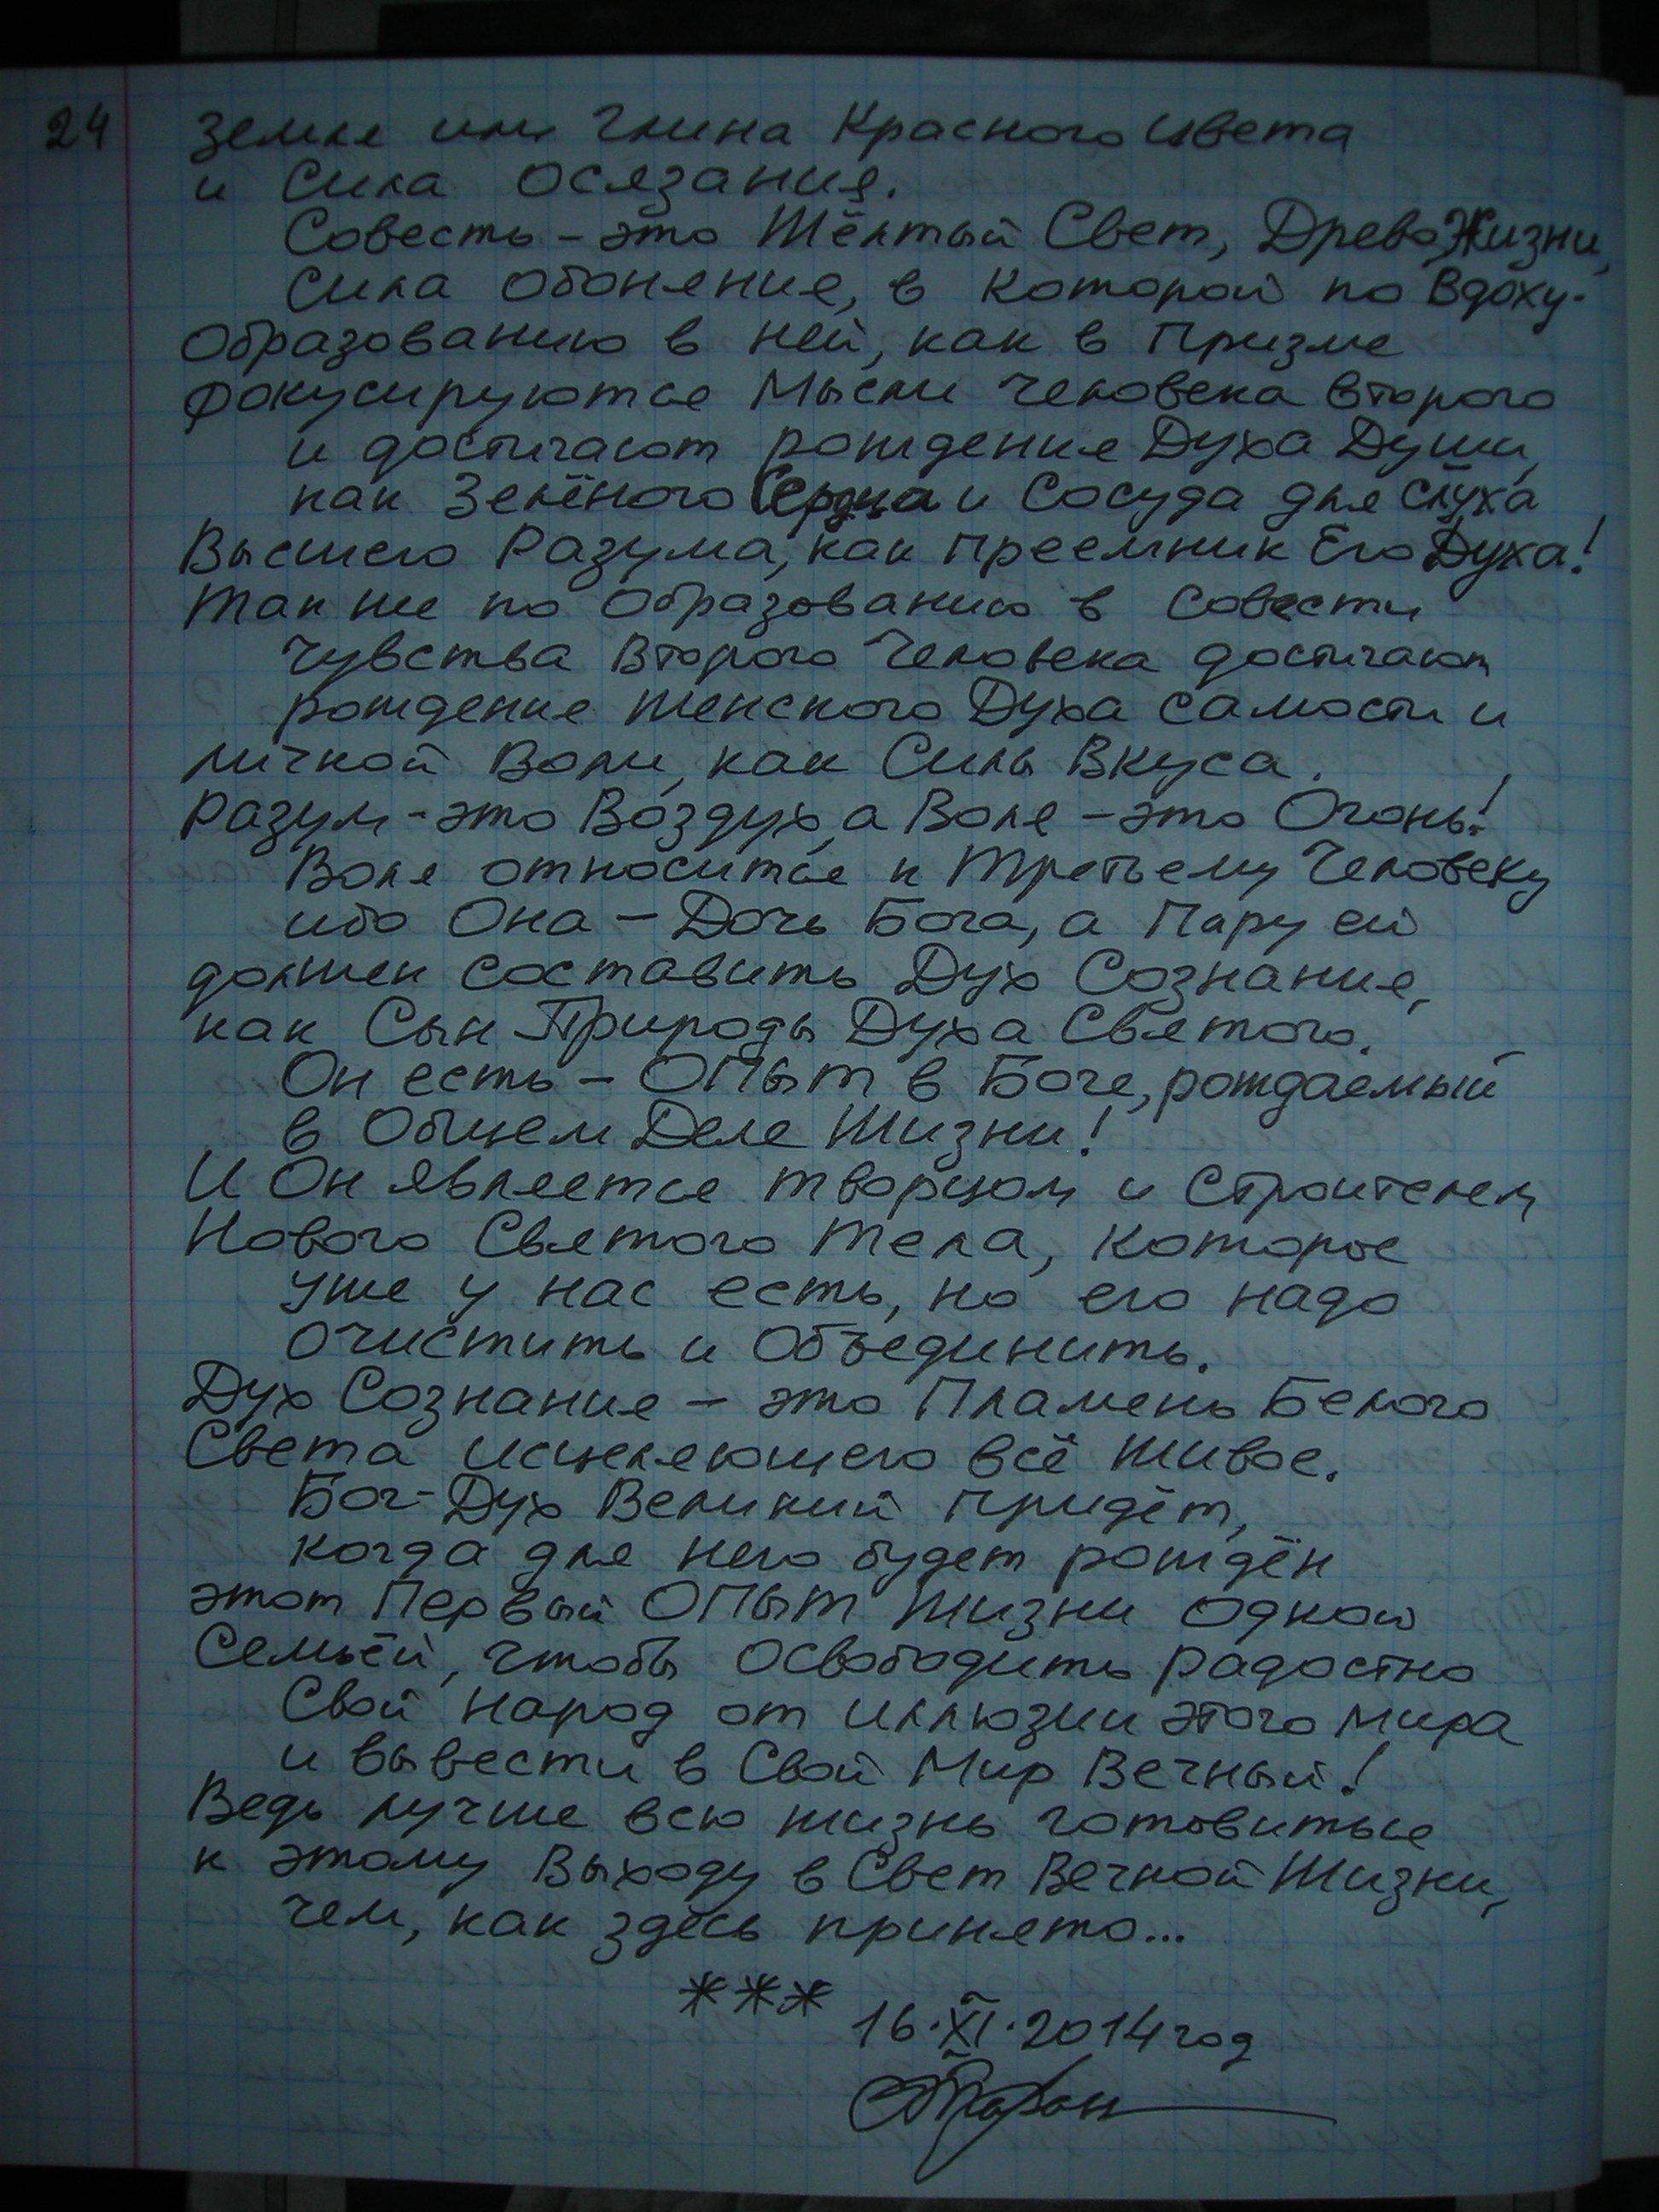 24 Земля или Глина Красного Цвета
и Сила Осязания.
Совесть – это Жёлтый Свет, Древо Жизни,
Сила Обоняния, в Которой по Вдоху-
Образованию в ней, как в Призме
фокусируются Мысли Человека Второго
и достигают рождения Духа Души,
как Зелёного Сердца и Сосуда для Слуха
Высшего Разума, как Преемник Его Духа!
Так же по Образованию в Совести
Чувства Второго Человека достигают
рождение Женского Духа Самости и
личной Воли, как Силы Вкуса.
Разум – это Воздух, а Воля – это Огонь!
Воля относится к Третьему Человеку
ибо Она – Дочь Бога, а Пару ей
должен составить Дух Сознания,
как Сын Природы Духа Святого.
Он есть – ОПыт в Боге, рождаемый
в Общем Деле Жизни!
И Он является творцом и Строителем
Нового Святого Тела, Которое
уже у нас есть, но его надо
Очистить и Объединить.
Дух Сознания – это Пламень Белого
Света исцеляющего всё Живое.
Бог-Дух Великий придёт,
когда для него будет рождён
этот Первый ОПыт Жизни Одной
Семьёй, чтобы Освободить радостно
Свой народ от иллюзии этого мира
и вывести в Свой Мир Вечный!
Ведь лучше всю жизнь готовиться
к этому Выходу в Свет Вечной Жизни,
чем, как здесь принято...
***
16.XI.2014 год